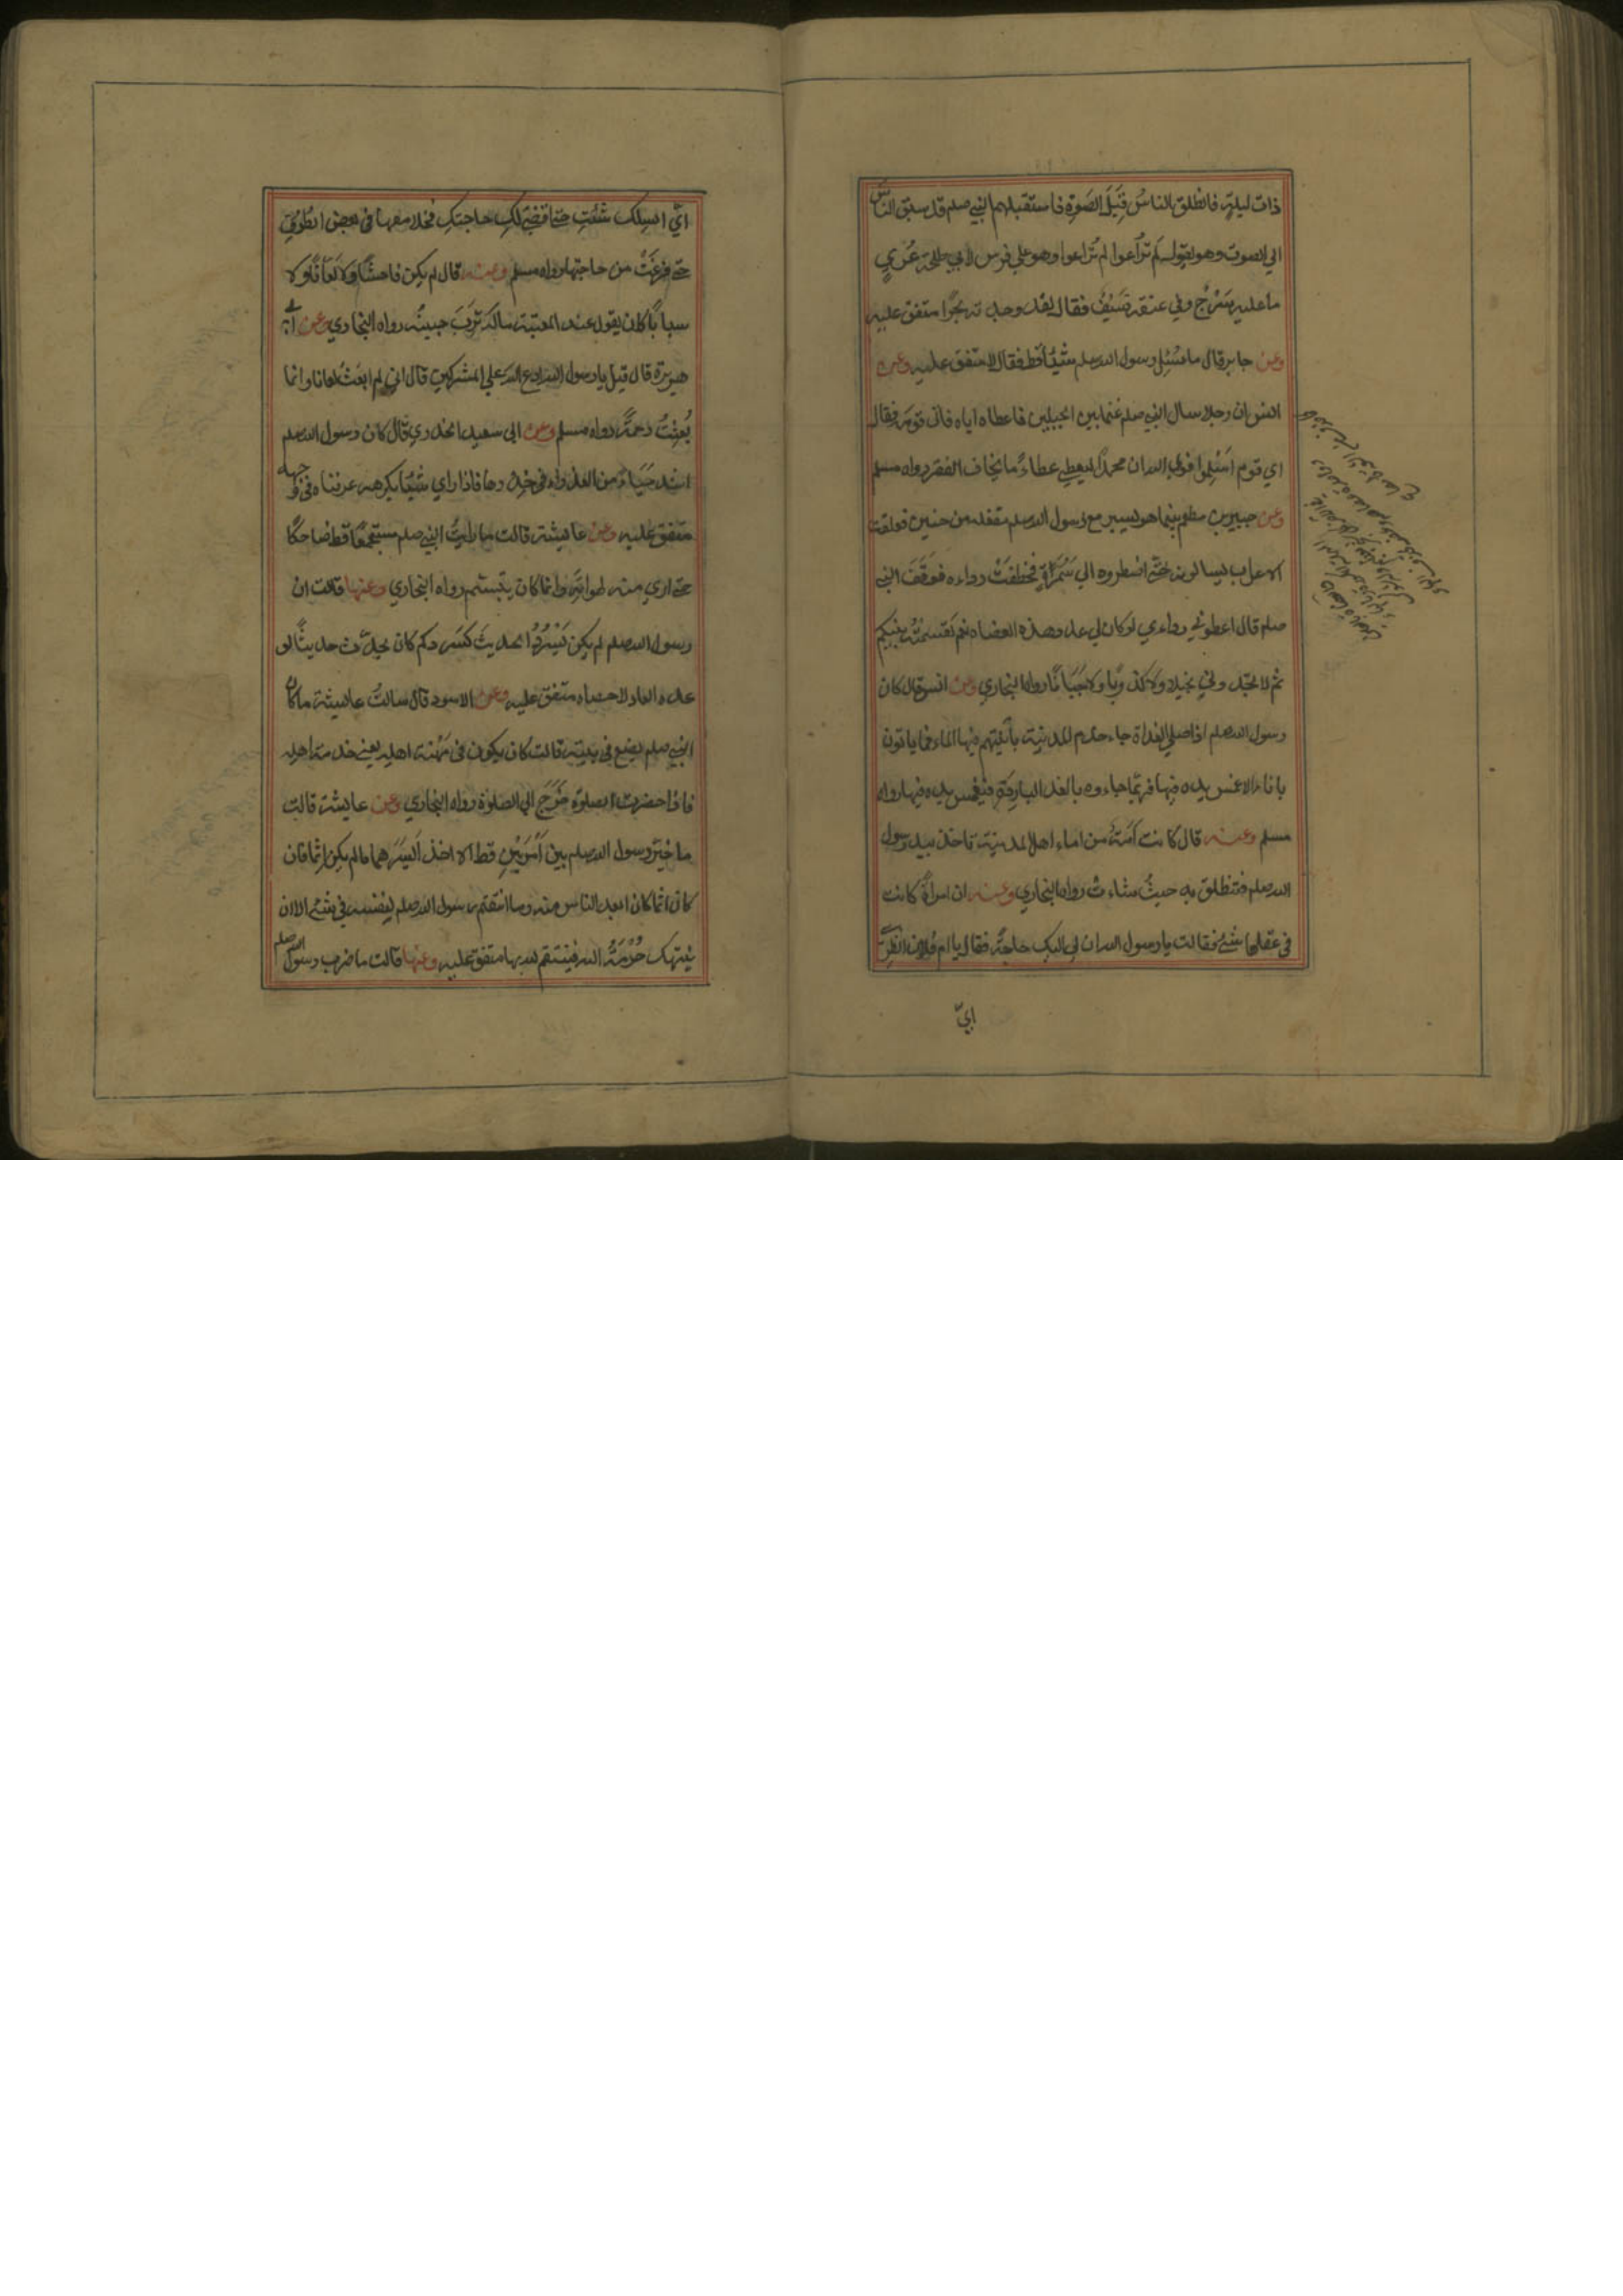 ذات ليلة فانطلق الناسُ قِبَلَ الصَوت فاستقبلهم النبي صلم قد سبق الناسَ
الي الصوت وهو يقول لَم تُراعوا لم تُراعوا وهو علي فرس لابي طلحة عُريٍ
ما عليه سَرْجٌ وفي عنقه سَيْفٌ فقال لقد وجدته بحرًا متفق عليه
وعن جابر قال ما سُئِل رسول الله صلم شيئًا قط فقال لا متفق عليه وعن
انس ان رجلا سال النبي صلم غنما بين الجبلين فاعطاه اياه فاتي قومَه فقال
اي قوم اَسْلِموا فوالله ان محمدًا ليعطي عطاءً ما يخاف الفقر رواه مسلم
وعن جبير بن مطعم بينما هو يسير مع رسول الله صلم مقفله من حنين فعلقت
الاعراب يسالونه حتي اضطروه الي سَمُرَةٍ فخطفتْ رداءه فوقَفَ النبي
صلم فقال اعطوني رداءي لوكان لي عدد هذه العضاه نعم لقسمتُه بينكم
ثم لا تجدوني بخيلا ولا كذوبًا ولا جَبَانًا رواه البخاري وعن انس قال كان
رسول الله صلم اذا صلي الغداة جاء خدم المدينة بآنيتهم فيها الماء فما ياتون
باناء الا غمس يده فيها فربما جاءوه بالغداة الباردة فيغمس يده فيها رواه
مسلم وعنه قال كانت اَمَةٌ من اماء اهل المدينة تاخذ بيد رسول
الله صلم فتنطلق به حيثُ شاءت رواه البخاري وعنه ان امراةً كانت
في عقلها شئٌ فقالت يا رسول الله ان لي اليك حاجةً فقال يا ام فُلان انظري
ايّ
ايّ السِكك شئتِ حتي اقضي لكِ حاجتكِ فخلا معها في بعض الطُرُق
حتي فرغَتْ من حاجتها رواه مسلم وعنه قال لم يكن فاحشًا ولا لعّانًا ولا
سبابًا كان يقول عند المعتبة ماله تَرِبَ جبينُه رواه البخاري وعن ابي
هريرة قال قيل يا رسول الله ادع الله علي المشركين قال اني لم ابعَثْ لعانا وانما
بُعِثْتُ رحمةً رواه مسلم وعن ابي سعيد الخدري قال كان رسول الله صلم
اشد حَيَاءً من العذراء في خدرها فاذا راي شيئًا يكرهه عرفناه في وجهه
متفق عليه وعن عايشة قالت ما رايتُ النبي صلم مستجمعًا قط ضاحكًا
حتي اري منه لهواتِه وانما كان يتبسّم رواه البخاري وعنها قالت ان
رسول الله صلم لم يكن يَسْرُدُ الحديثَ كسَردكم كان يحدّث حديثًا لو
عده العاد لاحصاه متفق عليه وعن الاسود قال سالتُ عايشة ما كان
النبي صلم يصنع في بيته قالت كان يكون في مَهْنة اهله يعني خدمة اهله
فاذا حضرت الصلوة خَرَجَ الي الصلوة رواه البخاري وعن عايشة قالت
ما خيّر رسول الله صلم بين اَمْرَيْنِ قط الا اخذ اَيسَرَهما ما لم يكن اِثما فان
كان اثما كان ابعد الناس منه وما انتقم رسول الله صلم لنفسه في شئ الا ان
يُنتهك حُرْمَةُ الله فينتقم لله بها متفق عليه وعنها قالت ما ضرب رسول الله صلم